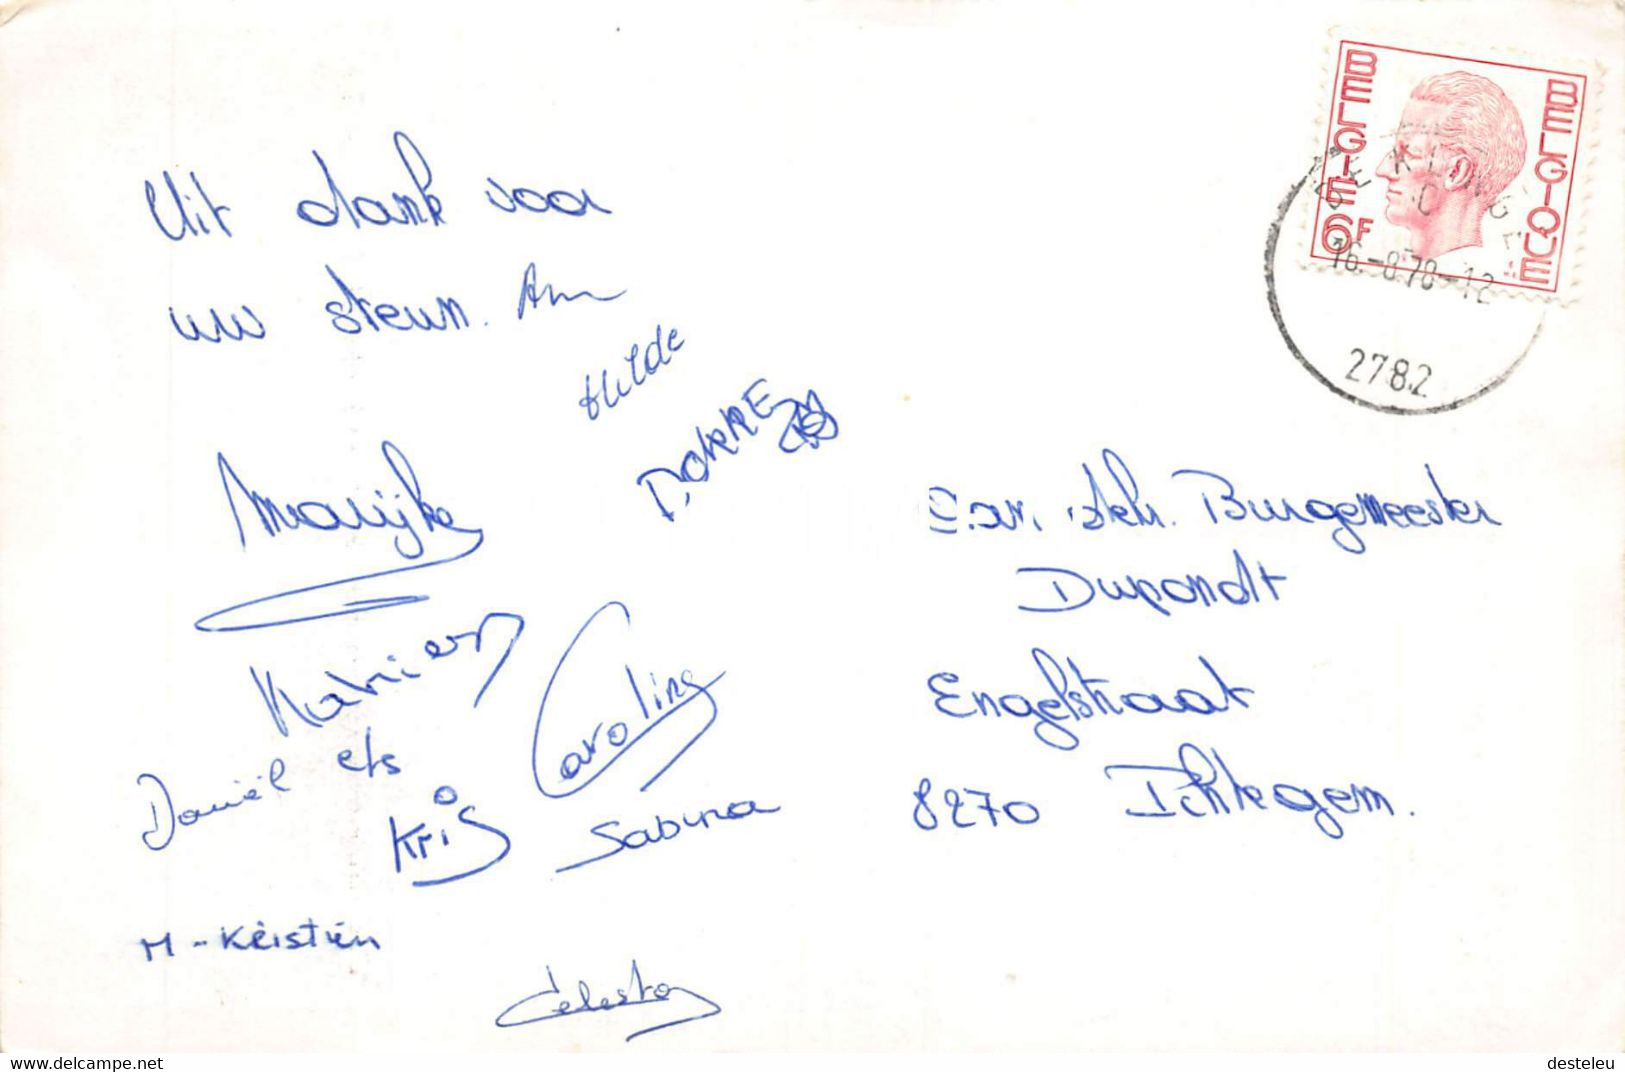 BELGIE 6F
BELGIQUE
16.-8.78-12
2782
Uit dank voor
uw steun. An
Hilde
Marijke
Caroline
Daniël
Kris
Sabina
Burgemeester
Dupondt
Engelstraat
8270 Ichtegem.
www.delcampe.net
desteleu